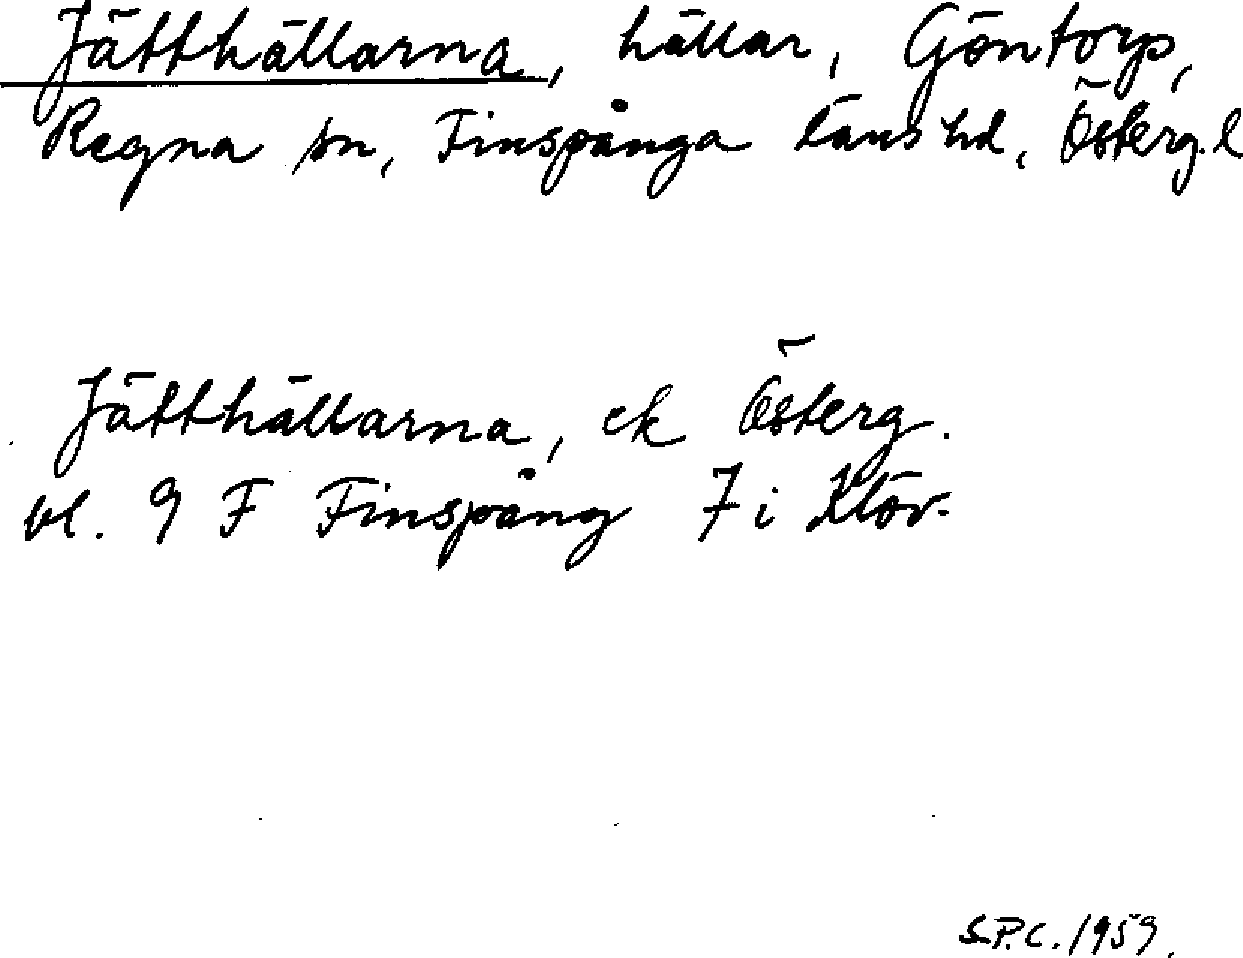 Jätthällarna, hällar, Göntorp,
Regna sn, Finspånga läns hd, Österg. l
Jätthällarna, ek Österg.
bl. 9 F Finspång 7 i Klöv-
S.P.C. 1959.